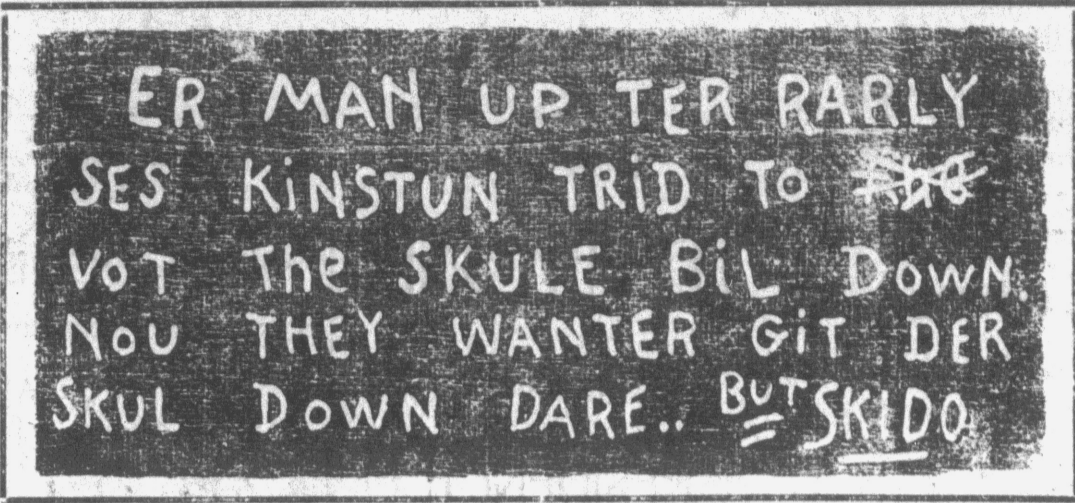 ER MAN UP TER RARLY
SES KINSTUN TRID TO
VOT The SKULE BIL DOWN.
NOU THEY WANTER GIT DER
SKUL DOWN DARE.. BUT SKIDO